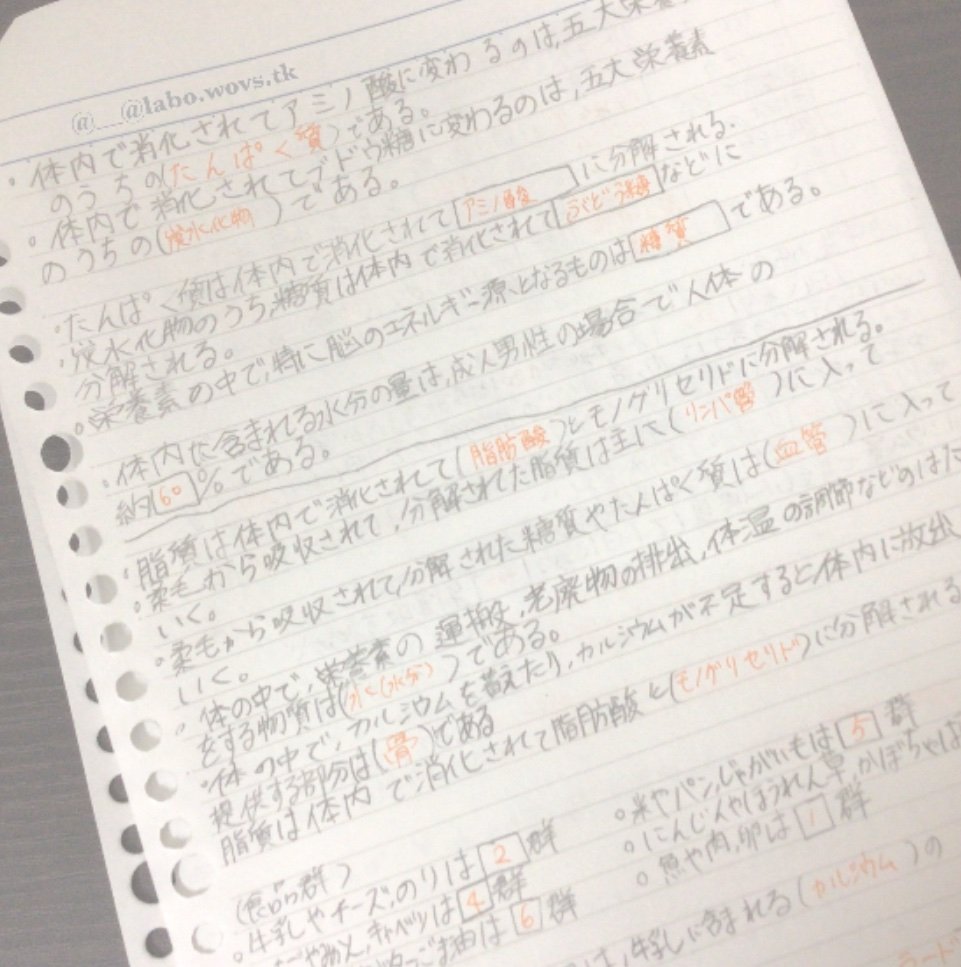 @__@labo.wovs.tk
・体内で消化されてアミノ酸に変わるのは、五大栄養
のうちの(たんぱく質)である。
。体内で消化されてブドウ糖に変わるのは、五大栄養素
のうちの(炭水化物)である。
・たんぱく質は体内で消化されてアミノ酸に分解される.
・炭水化物のうち、糖質は体内で消化されてぶどう糖などに
分解される。
。栄養素の中で、特に脳のエネルギー源となるものは糖質である。
・体内に含まれる水分の量は、成人男性の場合で人体の
約60%である。
・脂質は体内で消化されて(脂肪酸)とモノグリセリドに分解される。
・柔毛から吸収されて、分解された脂質は主に(リンパ管)に入って
いく。
・柔毛から吸収されて、分解された糖質やたんぱく質は(血管)に入って
いく。
・体の中で、栄養素の運搬、老廃物の排出、体温の調節などのはた
をする物質は(水(水分))である。
・体の中で、カルシウムを蓄えたり、カルシウムが不足すると体内に放出
提供する部分は(骨)である
脂質は体内で消化されて脂肪酸と(モノグリセリド)に分解される
(食品群)
。牛乳やチーズ、のりは2群
みかん、キャベツは4群
ごま油は6群
。米やパン、じゃがいもは5群
。にんじんやほうれん草、かぼちゃは
。魚や肉、卵は1群
は、牛乳に含まれる(カルシウム)の
ラード